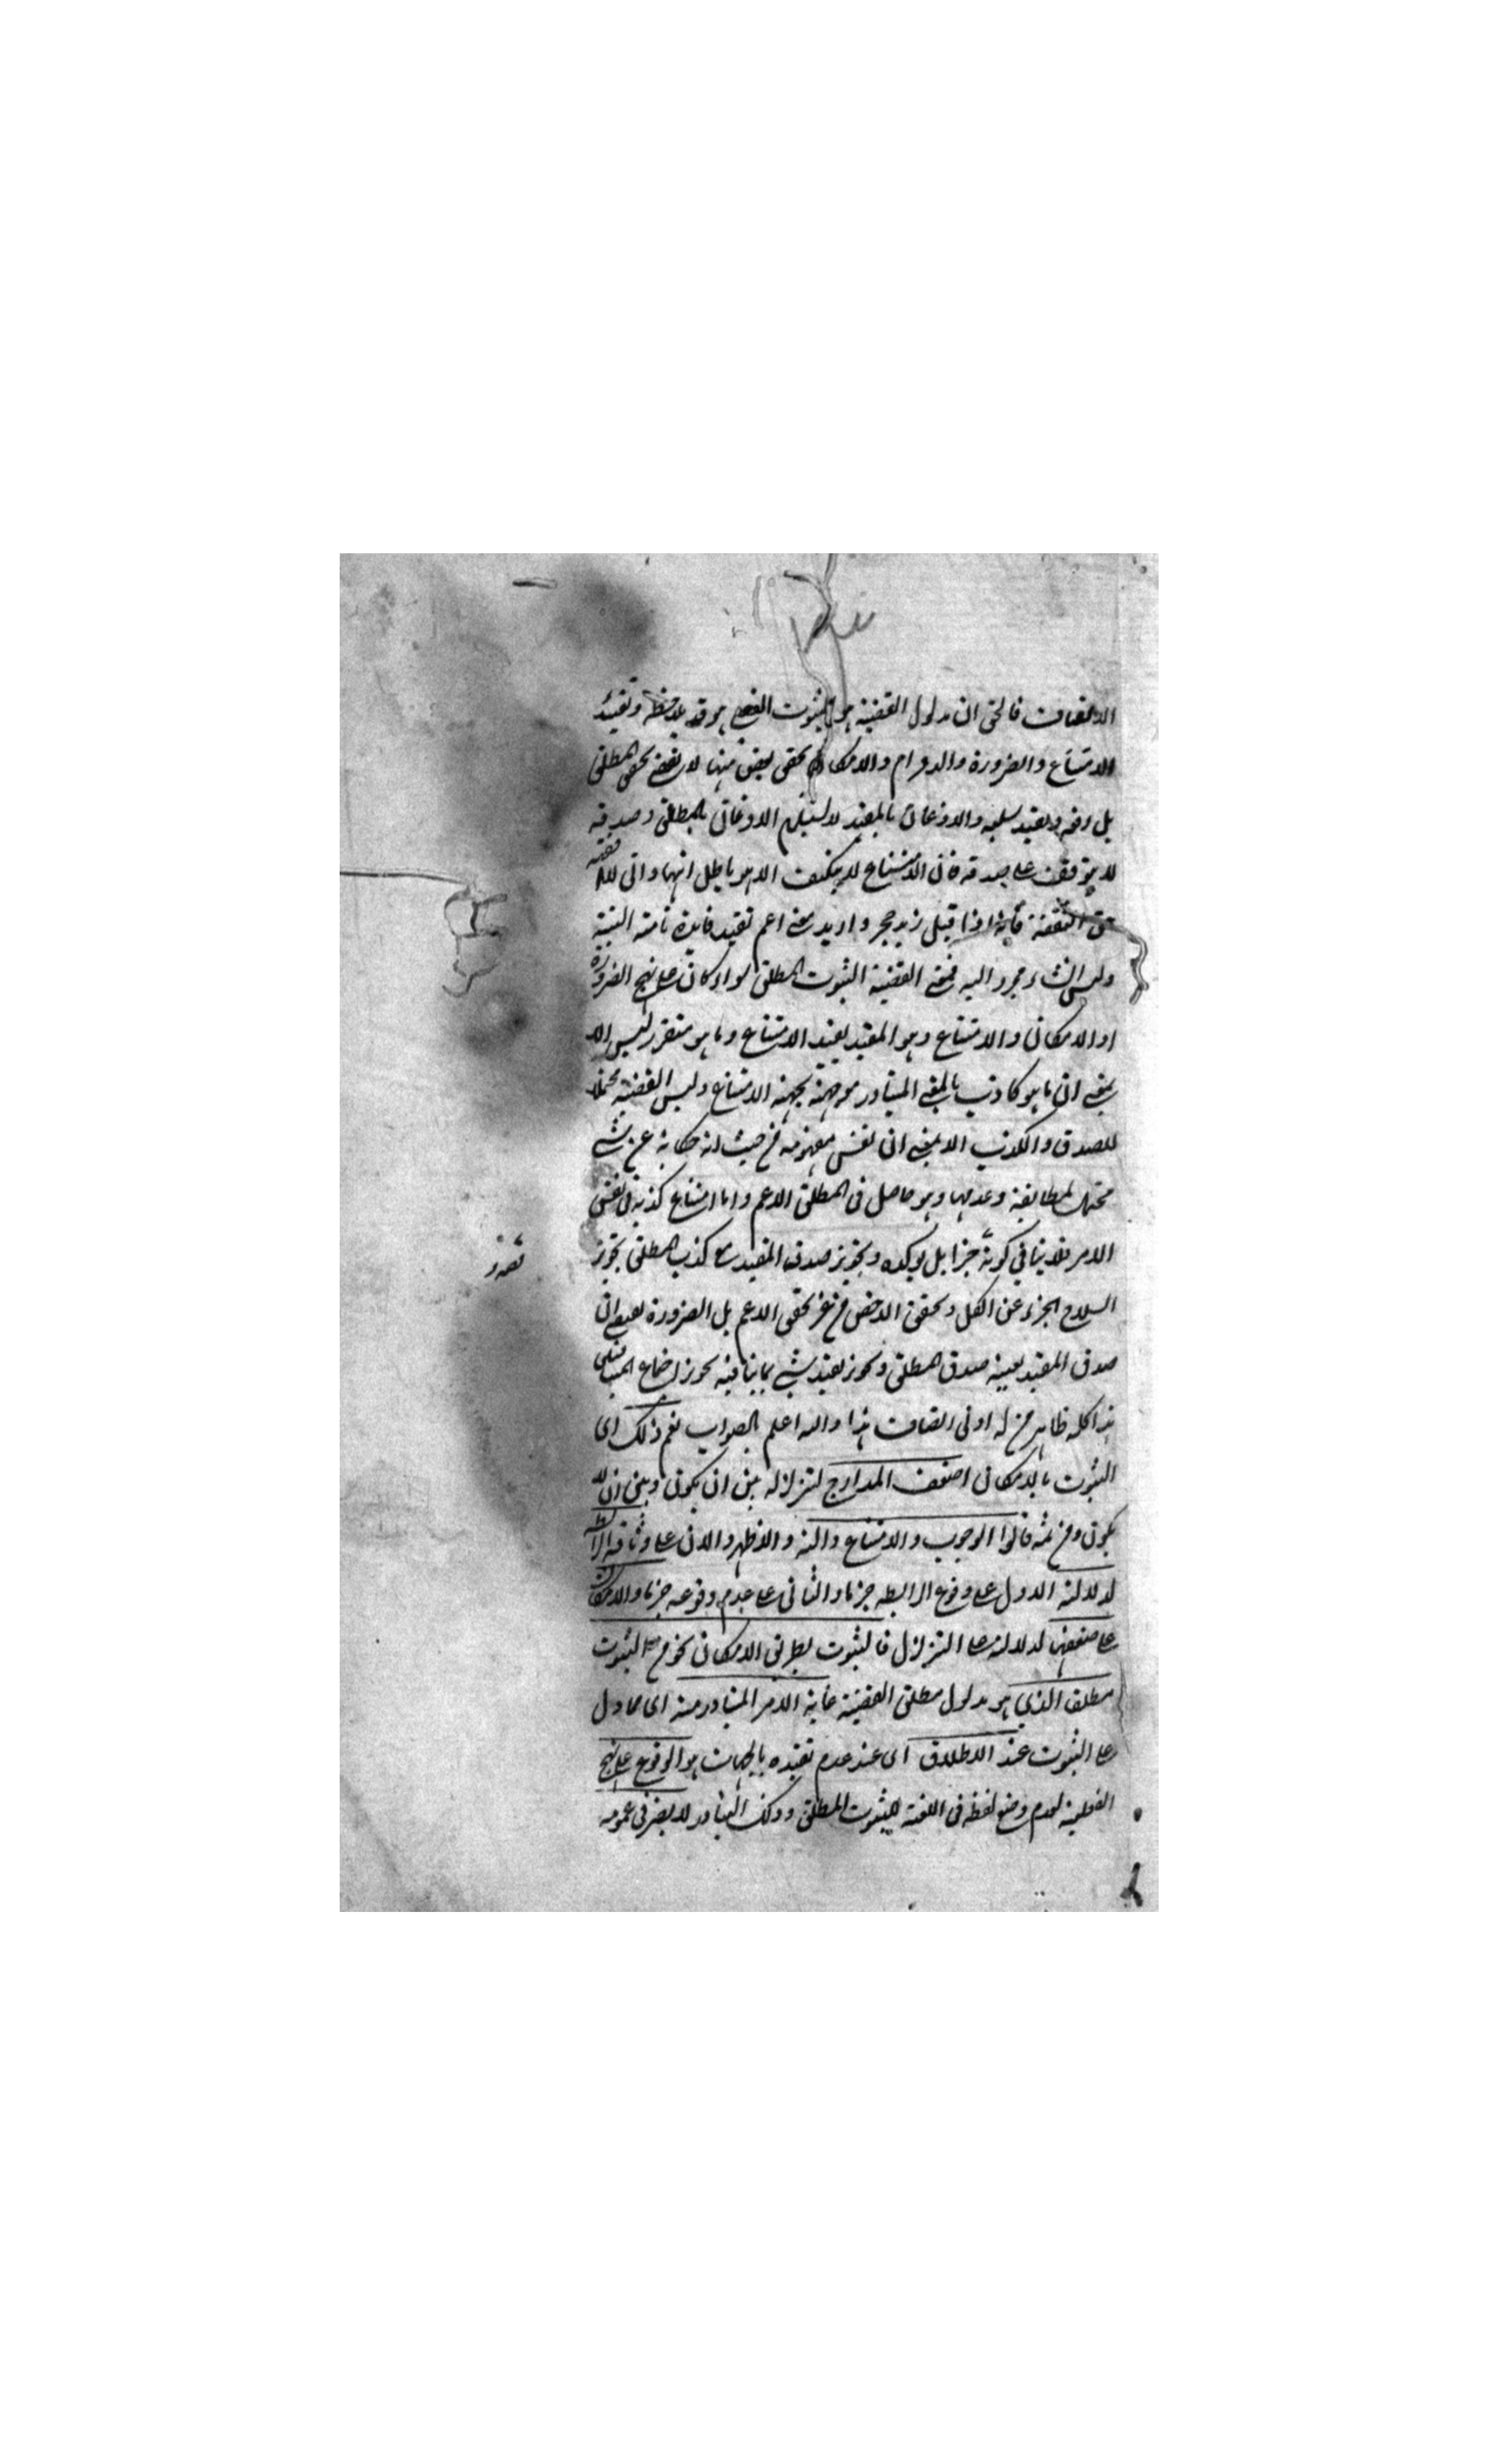 فالحق ان مدلول القضية هو الثبوت
الامتناع والضرورة والدوام والامكان تحقق بعض منها لا تحقق المطلق
بل رفعه وتقييد سلبه والاذعان بالمقيد لا يستلزم الاذعان بالمطلق وصدقه
لا يتوقف على صدقه فان الامتناع
فانه اذا قيل زيد حجر واريد معنى اعم تفيد فايدة تامة البتة
القضية الثبوت المطلق سواء كان على نهج الضرورة
او الامكان والامتناع وهو المقيد بقيد الامتناع وما هو متقرر ليس الا
بمعنى ان ما هو كاذب بالمعنى المتبادر موجهة بجهة الامتناع وليس القضية محتملا
للصدق والكذب الا بمعنى ان نفس مفهومه من حيث انه حكاية عن شيء
محتمل لمطابقة وعدمها وهو حاصل في المطلق الاعم واما امتناع كذبه في نفس
الامر فلا ينافي كونه خبرا بل يوكده وتجويز صدق المقيد مع كذب المطلق تجويز
انسلاخ الجزء عن الكل وتحقق الاخص من غير تحقق الاعم بل الضرورة
صدق المقيد بعينه صدق المطلق وتجويز تقييد شيء بما ينافيه تجويز اجتماع
هذا كله ظاهر من له ادنى انصاف هذا والله اعلم بالصواب نعم ذلك اى
الثبوت بالامكان اضعف المدارج لتزلزله بين ان يكون وبين ان لا
يكون ومن ثمه قالوا الوجوب والامتناع على وثاقة الرابطة
لدلالة الاول على وقوع الرابطه جزما والثانى على عدم وقوعه جزما والامكان
على ضعفها لدلالته على التزلزل فالثبوت بطريق الامكان نحو من الثبوت
مطلقا الذي هو مدلول مطلق القضية غاية الامر المتبادر منه اى مما دل
على الثبوت عند الاطلاق اى عند عدم تقييده بالجهات هو الوقوع على نهج
الفعلية لعدم وضع لفظه في اللغة للثبوت المطلق وذلك التبادر لا يضر في عمومه